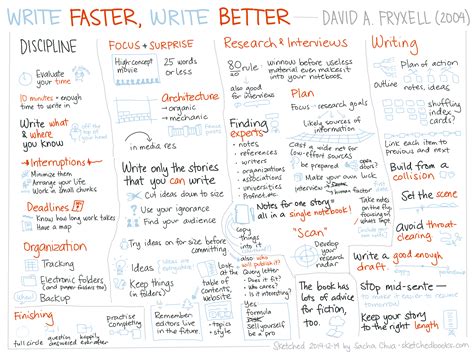 WRITE FASTER, WRITE BETTER — DAVID A. FRYXELL (2004)
DISCIPLINE
Evaluate
your time
10 minutes = enough
time to write in
Write what
& where
you know
off the
top of
my head
Interruptions
Minimize them
Arrange your life
Work in small chunks
Deadlines
Know how long work takes
Have a map
Organization
Tracking
Electronic folders
(and paper folders too)
Backup
Finishing
full
circle
question
answered
happily
everafter
practise
completing
FOCUS + SURPRISE
High concept
movie
25 words
or less
Architecture
→ organic
→ mechanic
in media res
Write only the stories
that you can write
Cut ideas down to size
Use your ignorance
Find your audience
Try ideas on for size before
committing
Ideas
Keep things
(in folders)
table of
contents,
website
Remember
editors live
in the future.
• topics
• style
Research & Interviews
80 rule
winnow before useless
material even makes it
into your notebook
also good
for interviews
Plan
Focus → research goals
Likely sources of
information
Finding
experts
• notes
• references
• writers
• organizations
• associations
• universities
• Profnet
Cast a wide net for
low-effort sources
be prepared
Make your own luck
human factor
Notes for one story
all in a single notebook!
copy
things
into it
"Scan"
Develop
your
research
radar
also who
will publish it?
Query letter
• Does it fit?
• Who cares?
• Is it interesting?
Yes, formula
Sell
yourself
be a pro
The book has
lots of advice
for fiction,
too.
Writing
Plan of action
outline
notes, ideas
shuffling
index
cards?
Link each item to
previous and next
Build from a
collision
Set the scene
Take notes
on the fly
focusing
on what's
impt.
Avoid throat-
clearing
Write a good enough
draft.
Stop mid-sente—
to make it easy to
resume
tomorrow
Sketched 2014-12-19 by Sacha Chua - sketchedbooks.com